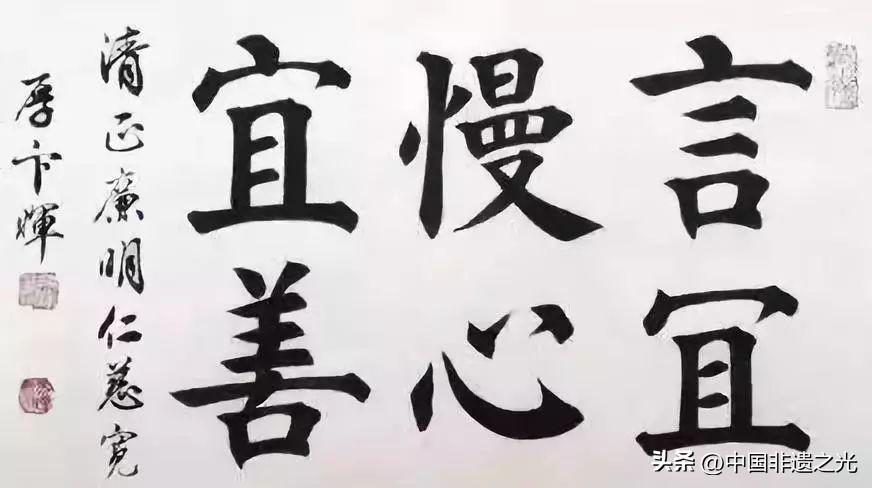 言冝
慢心
宜善
清正廉明仁慈寬
厚 卞
头条 @中国非遗之光